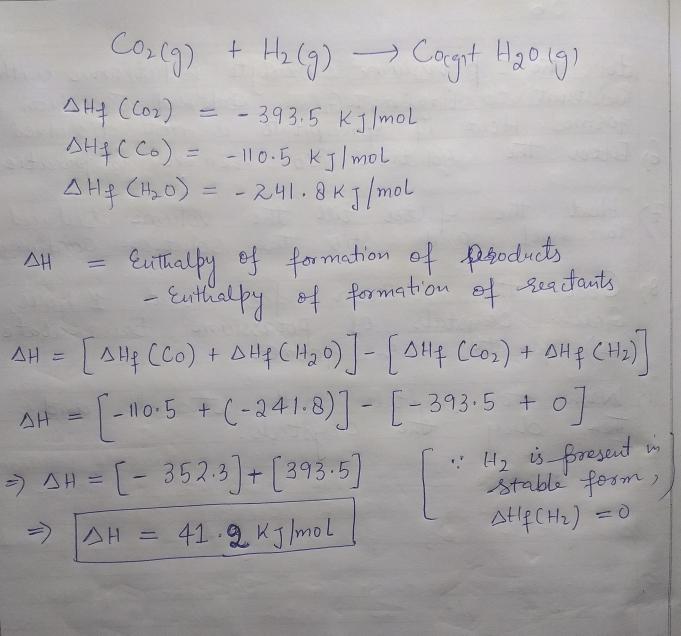 Co₂(g) + H₂(g) → Co(g)+ H₂O(g)
ΔHf (Co₂) = - 393.5 KJ/mol
ΔHf (Co) = -110.5 KJ/mol
ΔHf (H₂O) = - 241.8 KJ/mol
ΔH = Enthalpy of formation of products
- Enthalpy of formation of reactants
ΔH = [ΔHf (CO) + ΔHf (H₂O)] - [ΔHf (CO₂) + ΔHf (H₂)]
ΔH = [-110.5 + (-241.8)] - [-393.5 + 0]
⇒ ΔH = [- 352.3] + [393.5]
[∵ H₂ is present in
stable form,
ΔHf(H₂) = 0
⇒ ΔH = 41.2 KJ/mol